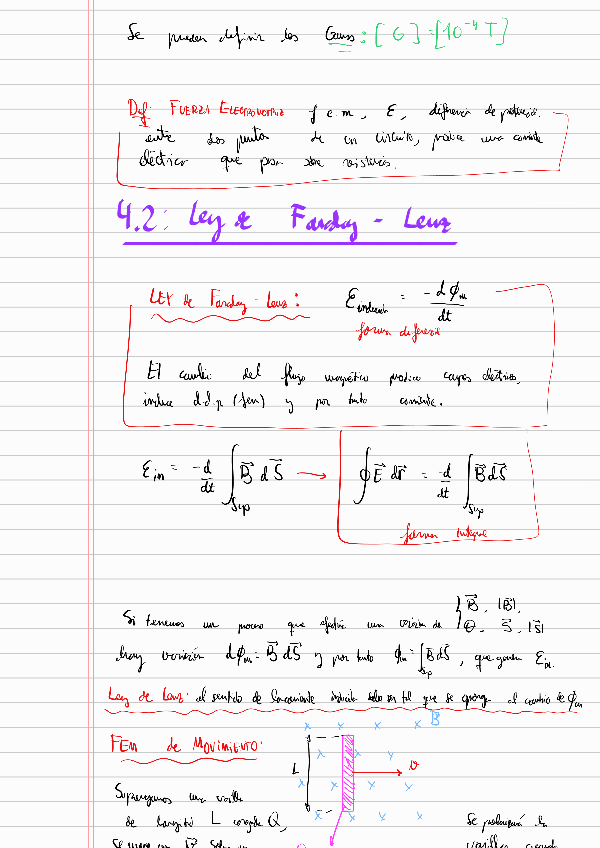 Se pueden definir los Gauss: [G] = [10⁻⁴ T]
Def: FUERZA ELECTROMOTRIZ f.e.m, ε, diferencia de potencial
entre dos puntos de un circuito, produce una corriente
eléctrica que pasa sobre resistencias.
4.2: Ley de Faraday - Lenz
LEY de Faraday - Lenz: ε inducción = -dϕm/dt
forma diferencial
El cambio del flujo magnético produce campos eléctricos,
induce d.d.p (fem) y por tanto corriente.
ε in = -d/dt ∫Sup B⃗ dS⃗ → ∮ E⃗ dr⃗ = -d/dt ∫Sup B⃗ dS⃗
forma integral
Si tenemos un proceso que una variación de { B⃗, |B⃗|, θ, S⃗, |S⃗|
hay variación dϕm = B⃗ dS⃗ y por tanto ϕm = ∫Sup B⃗ dS⃗, que genera ε in.
Ley de Lenz: el sentido de la corriente inducida es tal que se oponga al cambio de ϕm
FEM de MOVIMIENTO:
B
L
v
Supongamos una varilla
de longitud L cargada Q,
Se producirá la